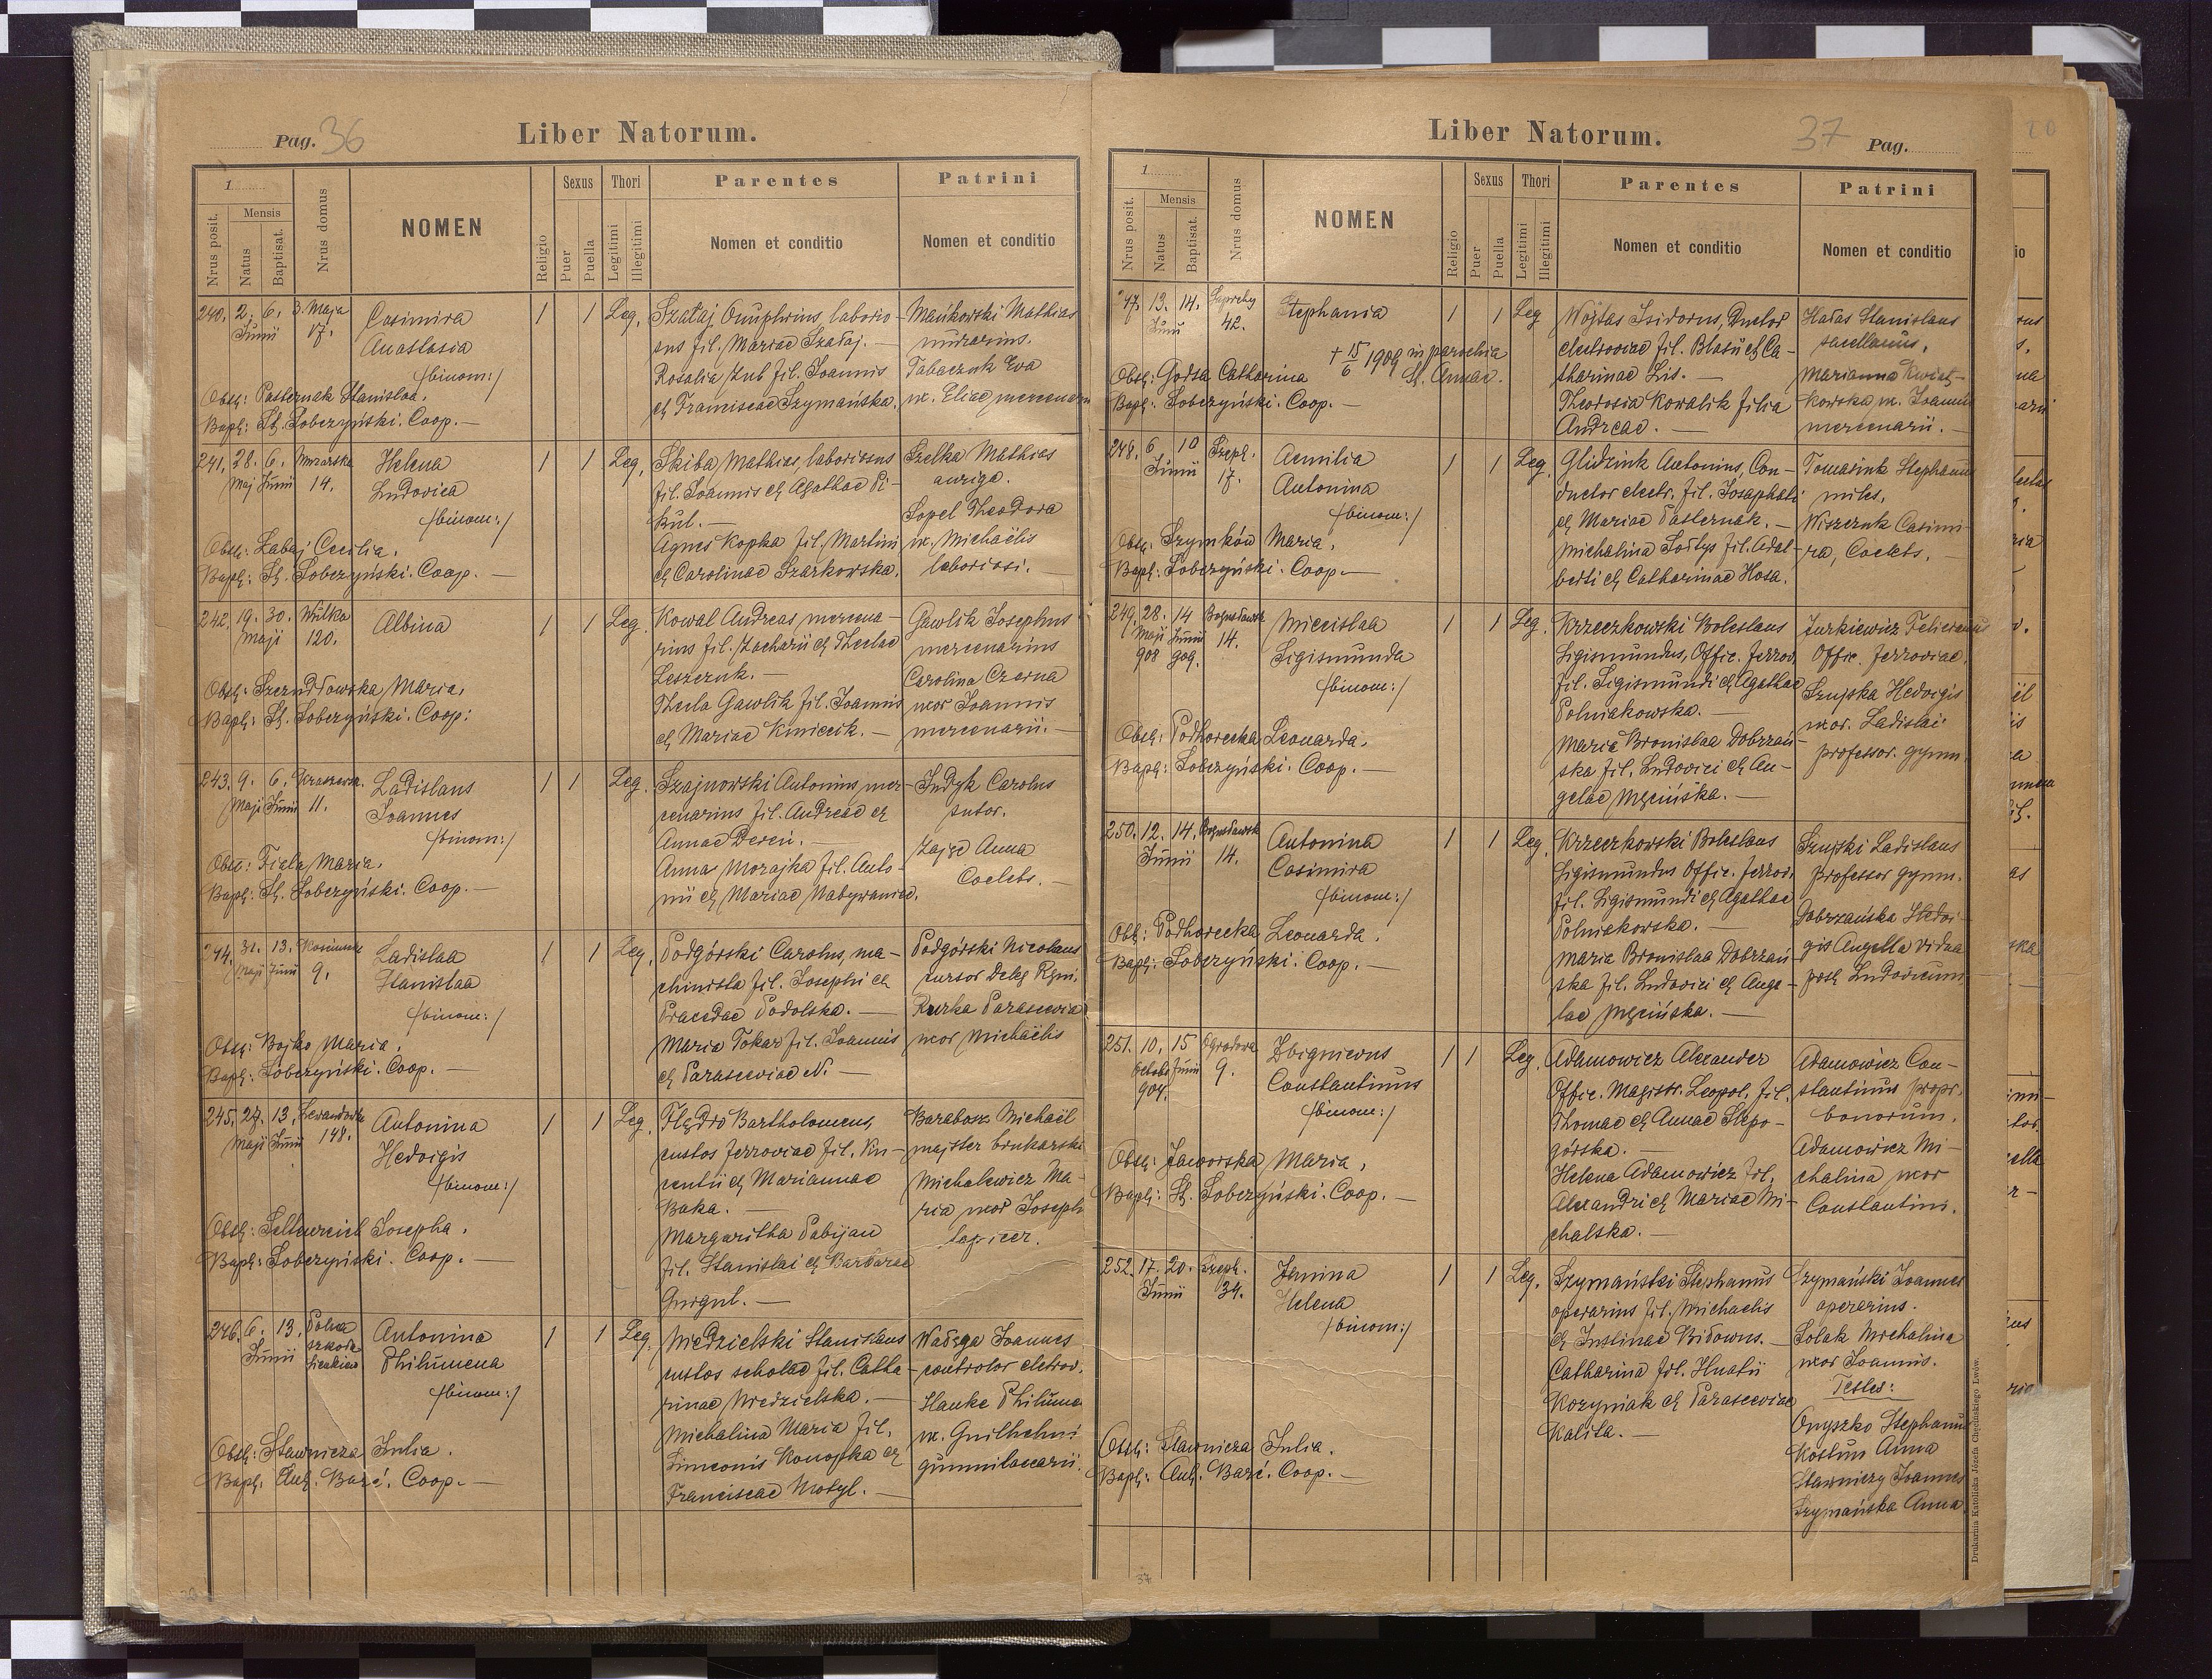 Pag. 36
Liber Natorum.
1
Nrus posit.
Mensis
Natus
Baptisat.
Nrus domus
NOMEN
Religio
Sexus
Puer
Puella
Thori
Legitimi
Illegitimi
Parentes
Nomen et conditio
Patrini
Nomen et conditio
240. 2. 6. 3. Maja
Junii 17.
Casimira
Anastasia
/binom:/
Obst: Pasternak Stanislaa.
Bapt: St. Soberzyński. Coop. —
1 1 Leg.
Szałaj Onuphrius, laborio-
sus fil. Mariae Szałaj. —
Rosalia Zub fil. Joannis
et Franciscae Szymańska.
Mańkowski Mathias
murarius.
Tabaczuk Eva
ux. Eliae mercenarii
241. 28. 6. Murarska
Maj Junii 14.
Helena
Ludovica
/binom:/
Obst: Łabaj Cecilia.
Bapt: St. Soberzyński. Coop. —
1 1 Leg.
Skiba Mathias, laboriosus
fil. Joannis et Agathae Pi-
kul. —
Agnes Kopka fil. Martini
et Carolinae Szarkowska.
Szelka Mathias
auriga.
Sopel Theodora
ux. Michaëlis
laboriosi. —
242. 19. 30. Wulka
Maji 120.
Albina
Obst: Szczudłowska Maria.
Bapt: St. Soberzyński. Coop:
1 1 Leg.
Kowal Andreas mercena-
rius fil. Zacharii et Theclae
Leszczuk. —
Thecla Gawlik fil. Joannis
et Mariae Kmiecik. —
Gawlik Josephus
mercenarius
Carolina Czarna
uxor Joannis
mercenarii. —
243. 9. 6. Kraszewsk.
Maji Junii 11.
Ladislaus
Joannes
/binom:/
Obst: Fiala Maria.
Bapt: St. Soberzyński. Coop. —
1 1 Leg.
Szajnowski Antonius, mer-
cenarius fil. Andreae et
Annae Dereń. —
Anna Morajka fil. Anto-
nii et Mariae Nabywaniec.
Indyk Carolus
sutor.
Zając Anna
Coelebs. —
244. 31. 13.
Maji Junii 9.
Ladislaa
Stanislaa
/binom:/
Obst: Bojko Maria.
Bapt: Soberzyński. Coop. —
1 1 Leg.
Podgórski Carolus, ma-
chinista fil. Josephi et
Praxedae Podolska. —
Maria Tokar fil. Joannis
et Parasceviae N. —
Podgórski Nicolaus
cursor
Kurka Parascevia
uxor Michaëlis
245. 27. 13. Lewandówka
Maji Junii 148.
Antonina
Hedvigis
/binom:/
Obst: Josepha.
Bapt: Soberzyński. Coop. —
1 1 Leg.
Flędro Bartholomeus,
custos ferroviae fil.
et Mariannae
Baka. —
Margaritha Pabijan
fil. Stanislai et Barbarae
Gurgul. —
Barabosz Michaël
majster brukarski
Michalewicz Ma-
ria uxor Joseph
tapicer.
246. 6. 13. Polna
Junii szkoła
Sienkiew
Antonina
Philumena
/binom:/
Obst: Sławnicza Julia.
Bapt: Ant. Baré. Coop. —
1 1 Leg.
Niedzielski Stanislaus
custos scholae fil. Catha-
rinae Niedzielska. —
Michalina Maria fil.
Simeonis Konopka et
Franciscae Motyl. —
Wałęga Joannes
controlor eletrov.
Hanke Philume
ux. Guilhelmi
Liber Natorum.
37 Pag.
1
Nrus posit.
Mensis
Natus
Baptisat.
Nrus domus
NOMEN
Religio
Sexus
Puer
Puella
Thori
Legitimi
Illegitimi
Parentes
Nomen et conditio
Patrini
Nomen et conditio
247. 13. 14. Sapiehy
Junii 42.
Stephania
† 15/6 1909 in parochia
St. Annae.
Obst: Godsa Catharina
Bapt: Soberzyński. Coop. —
1 1 Leg
Wojtas Isidorus, Ductor
electroviae fil. Blasii et Ca-
tharinae Lis. —
Theodosia Kowalik filia
Andreae. —
Hałas Stanislaus
Marianna Kwiat-
kowska ux. Joannis
mercenarii. —
248. 6. 10 Szept.
Junii 17.
Aemilia
Antonina
/binom:/
Obst: Szymków Maria.
Bapt: Soberzyński. Coop. —
1 1 Leg.
Glidziuk Antonius, Con-
ductor electr. fil. Josaphati
et Mariae Pasternak. —
Michalina Sołtys fil. Adal-
berti et Catharinae Hosa.
Tomasiuk Stephanus
miles.
Wiszczuk Casimi-
ra, Coelebs. —
249. 28. 14 Bogusławsk
Maji Junii 14.
908 909.
Miecislaa
Sigismunda
/binom:/
Obst: Podhorecka Leonarda.
Bapt: Soberzyński. Coop. —
1 1 Leg.
Krzeczkowski Boleslaus
Sigismundus, Offic. ferrov.
fil. Sigismundi et Agathae
Polniakowska. —
Maria Bronislaa Dobrzań-
ska fil. Ludovici et An-
gelae Męcińska. —
Jurkiewicz Felicianus
Offic. ferroviae.
Szujska Hedvigis
uxor. Ladislai
professor. gymn.
250. 12. 14. Bogusławsk
Junii 14.
Antonina
Casimira
/binom:/
Obst: Podhorecka Leonarda.
Bapt: Soberzyński. Coop. —
1 1 Leg.
Krzeczkowski Boleslaus
Sigismundus Offic. ferrov.
fil. Sigismundi et Agathae
Polniakowska. —
Maria Bronislaa Dobrzań
ska fil. Ludovici et Ange-
lae Męcińska. —
Szujski Ladislaus
professor gymn.
Dobrzańska Hedvi-
gis Angella vidua
post Ludovicum
251. 10. 15 Ogrodowa
Octobr Junii 9.
904.
Zbignievus
Constantinus
/binom:/
Obst: Jaworska Maria.
Bapt: St. Soberzyński. Coop. —
1 1 Leg.
Adamowicz Alexander
Offic. Magistr. Leopol. fil.
Thomae et Annae Stepo-
górska. —
Helena Adamowicz fil.
Alexandri et Mariae Mi-
chalska. —
Adamowicz Con-
stantinus propr.
bonorum.
Adamowicz Mi-
chalina uxor
Constantini.
252. 17. 20. Szept.
Junii 34.
Janina
Helena
/binom:/
Obst: Sławnicza Julia.
Bapt: Ant. Baré. Coop. —
1 1 Leg.
Szymański Stephanus
operarius fil. Michaelis
et Justinae Bidowus. —
Catharina fil. Hnatii
Kozyniak et Parasceviae
Kalita. —
Szymański Joannes
operarius.
Solak Michalina
uxor Joannis.
Testes:
Onyszko Stephanus
Kostun Anna
Sławniczy Joannes
Szymańska Anna
Drukarnia Katolicka Józefa Chęcińskiego Lwów.
37